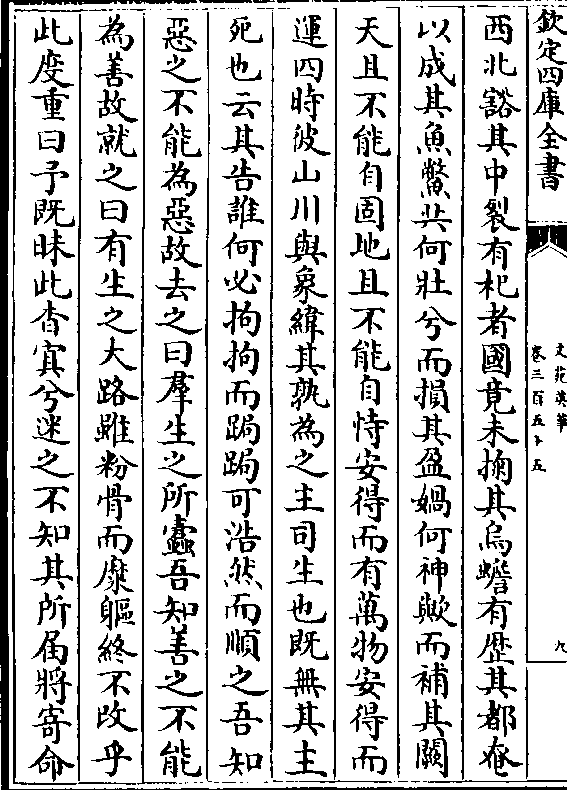 欽定四庫全書
文苑英華
卷三百五十五
九
西北豁其中裂有杞者國竟未掬其烏蟾有歴其都奄
以成其魚鱉共何壯兮而損其盈媧何神歟而補其闕
天且不能自固地且不能自恃安得而有萬物安得而
運四時彼山川與象緯其孰為之主司生也既無其主
死也云其告誰何必拘拘而跼跼可浩然而順之吾知
惡之不能為惡故去之曰羣生之所蠧吾知善之不能
為善故就之曰有生之大路雖粉骨而糜軀終不改乎
此度重曰予既昧此杳寘兮迷之不知其所屆將寄命